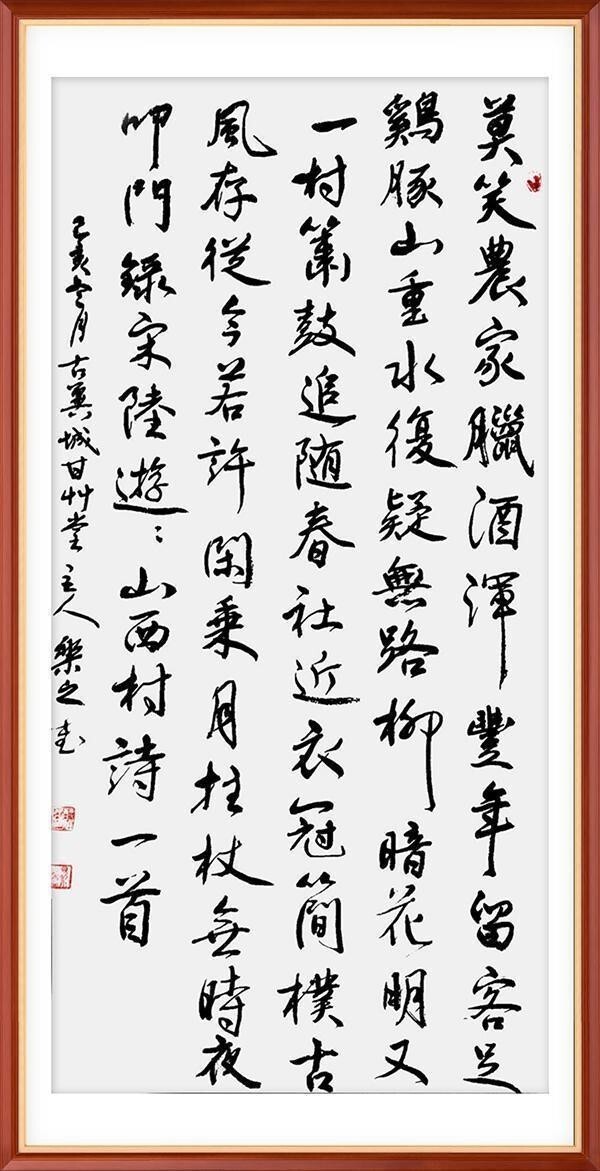 莫笑農家臘酒渾豐年留客足
鷄豚山重水復疑無路柳暗花明又
一村簫鼓追随春社近衣冠簡樸古
風存從今若許閑乘月拄杖無時夜
叩門錄宋陸遊遊山西村詩一首
己亥冬月古冀城甘艸堂主人樂之書